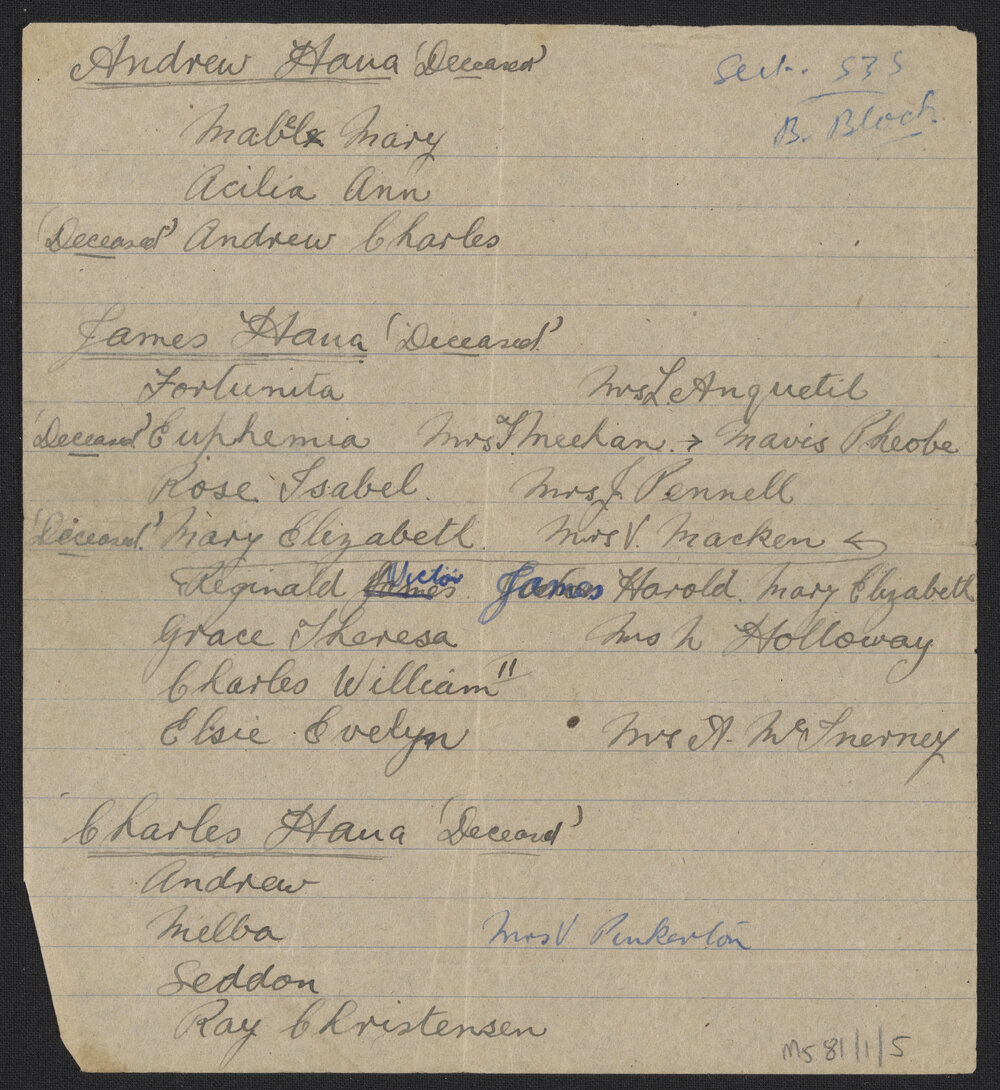 Andrew Haua 'Deceased'
Sect. 535
B. Block
Mabel Mary
Acilia Ann
'Deceased' Andrew Charles
James Haua 'Deceased'
Fortunita Mrs L. Anquetil
'Deceased' Euphemia Mrs T. Meehan → Mavis Pheobe
Rose Isabel. Mrs J. Pennell
'Deceased' Mary Elizabeth. Mrs V. Macken ←
Reginald James Victor James Harold. Mary Elizabeth
Grace Theresa Mrs N Holloway
Charles William "
Elsie Evelyn Mrs A. McInerney
Charles Haua 'Deceased'
Andrew
Melba Mrs V Pinkerton
Seddon
Ray Christensen
MS 81/1/5